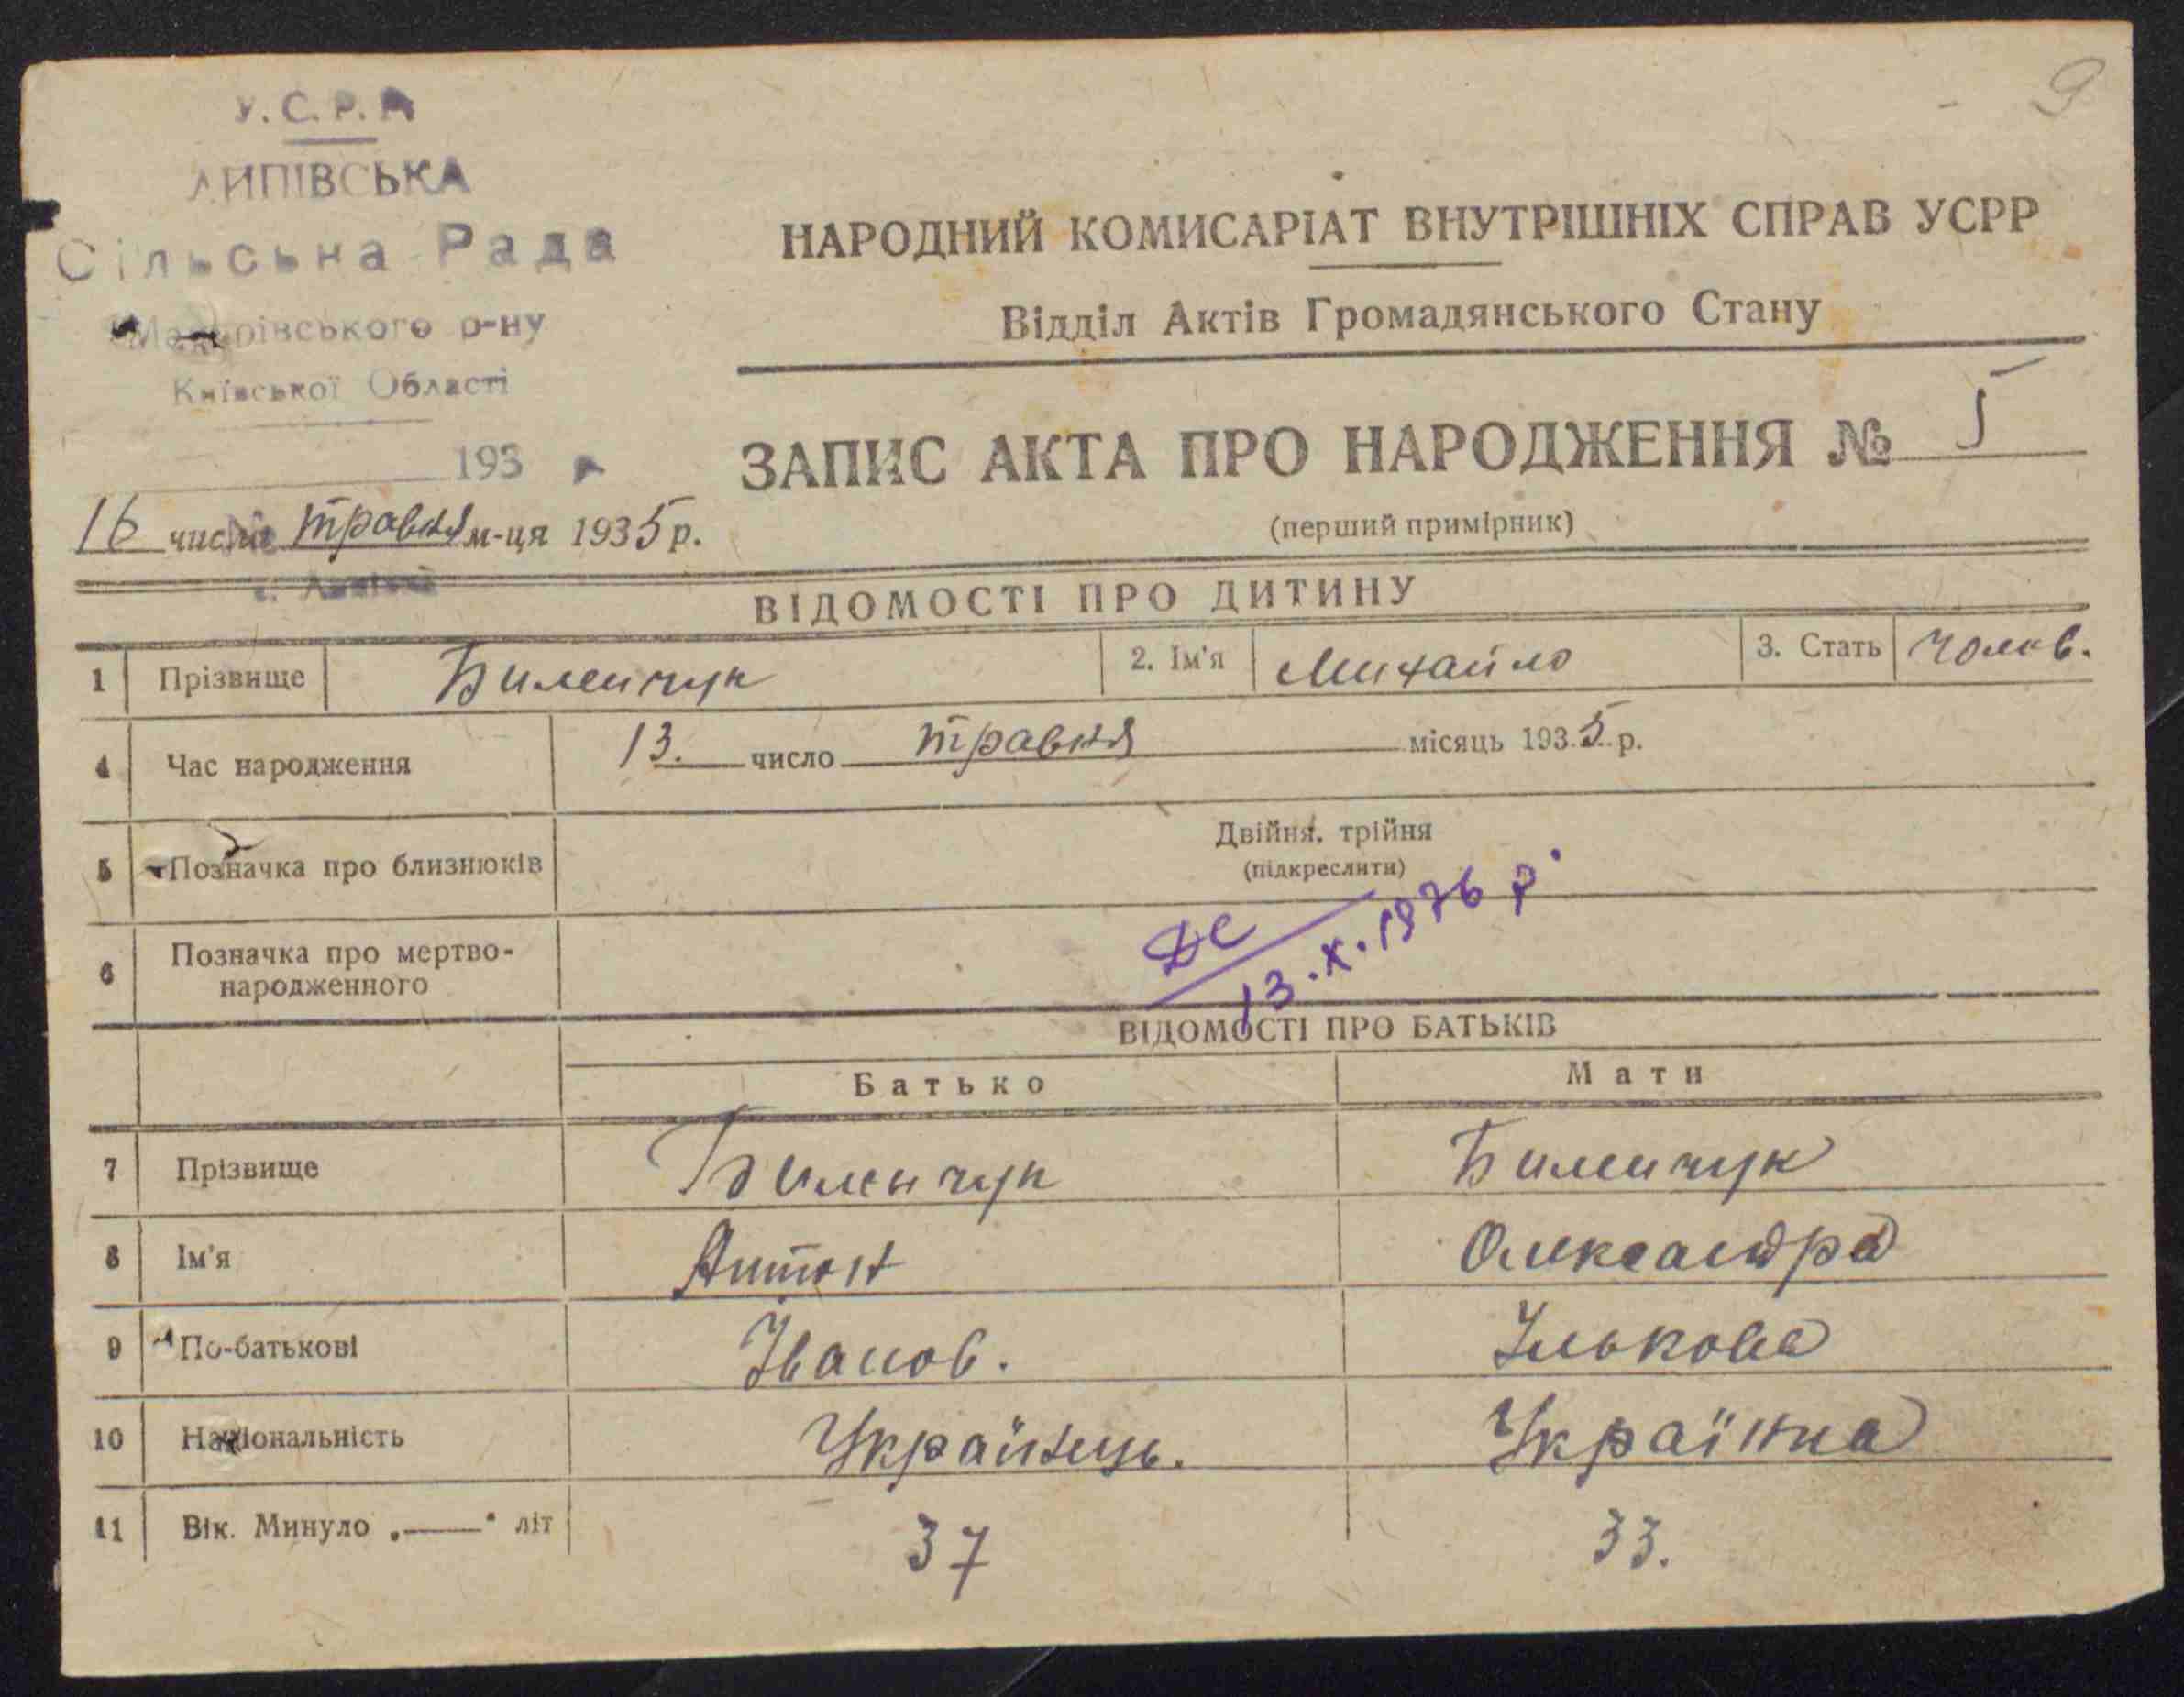 9
У.С.Р.Р.
ЛИПІВСЬКА
Сільська Рада
Макарівського р-ну
Київської Області
193
16 числа травня м-ця 1935 р.
НАРОДНИЙ КОМИСАРІАТ ВНУТРІШНІХ СПРАВ УСРР
Відділ Актів Громадянського Стану
ЗАПИС АКТА ПРО НАРОДЖЕННЯ № 5
(перший примірник)
ВІДОМОСТІ ПРО ДИТИНУ
1 Прізвище Билинчук 2. Ім'я Михайло 3. Стать чолов.
4 Час народження 13. число травня місяць 1935 р.
5 Позначка про близнюків Двійня, трійня
(підкреслити)
6 Позначка про мертво-
народженного
ДС
13.X.1976 р.
ВІДОМОСТІ ПРО БАТЬКІВ
Батько Мати
7 Прізвище Билинчук Билинчук
8 Ім'я Антон Олександра
9 По-батькові Іванов. Ількова
10 Національність Українець. Українка
11 Вік. Минуло „——“ літ 37 33.